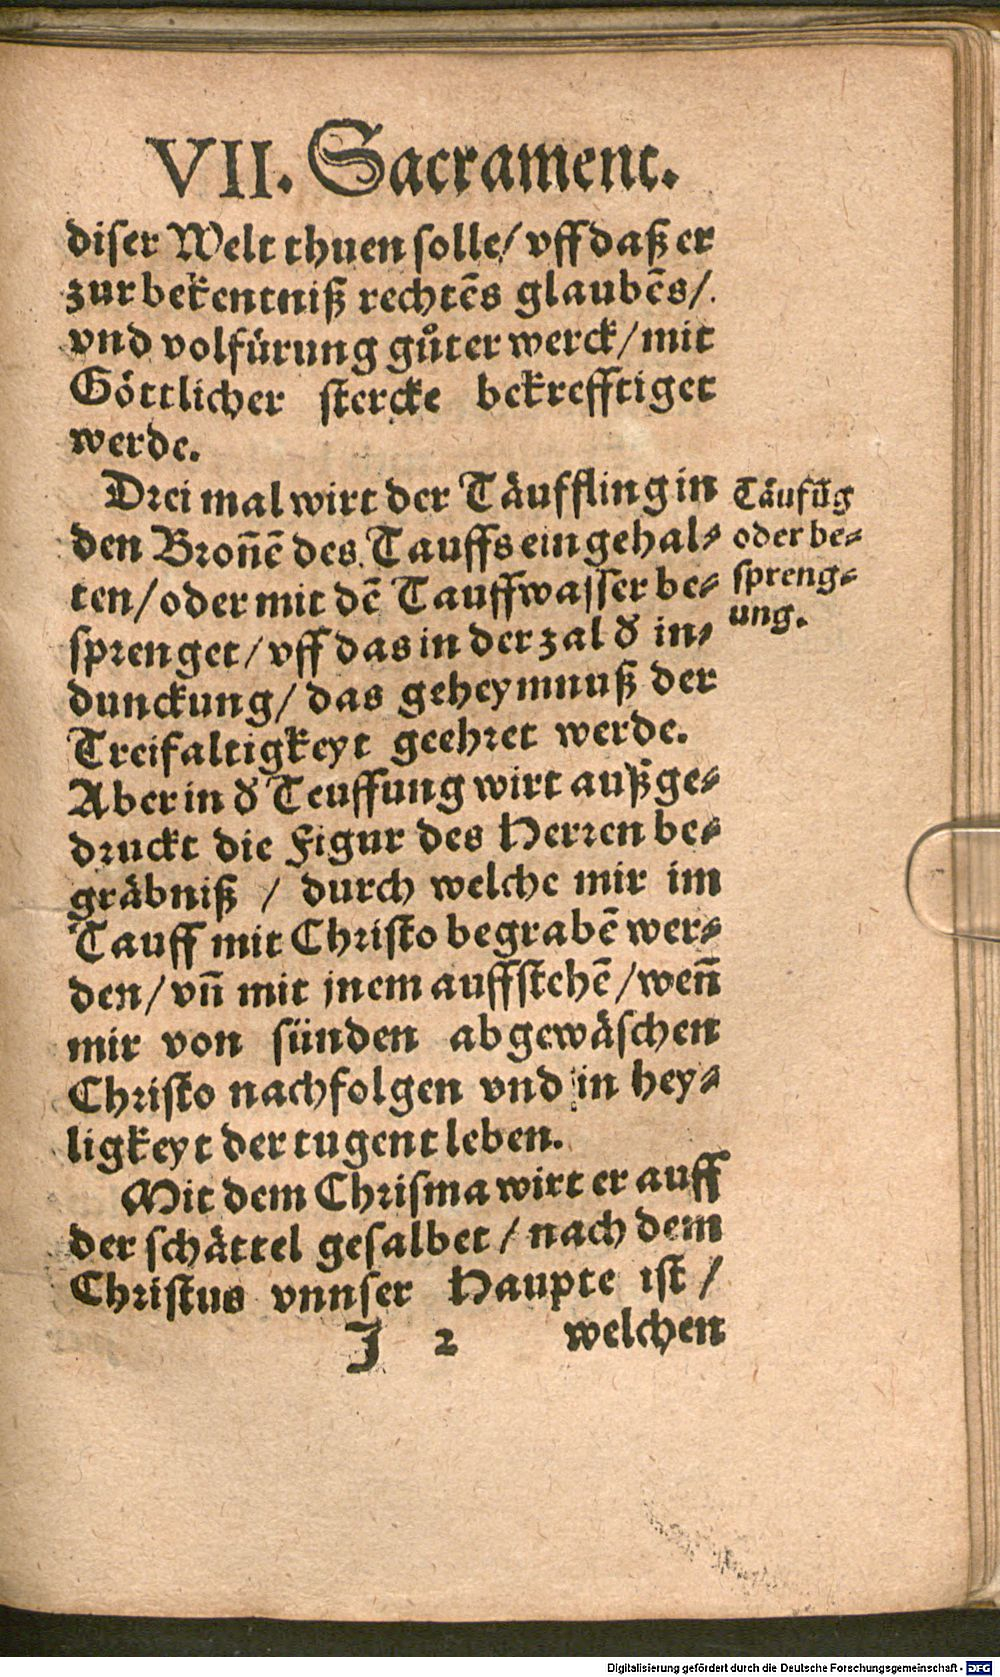 VII. Sacrament.
diser Welt thuen solle/ vff daß er
zur bekentniß rechtẽs glaubẽs/.
vnd volfürung gůter werck/ mit
Göttlicher stercke bekrefftiget
werde.
Drei mal wirt der Täuffling in
den Broñẽ des Tauffs eingehal⸗
ten/ oder mit dẽ Tauffwasser be⸗
sprenget/ vff das in der zal d̕ in⸗
dunckung/ das geheymnuß der
Treifaltigkeyt geehret werde.
Aber in d̕ Teuffung wirt außge⸗
druckt die Figur des Herren be⸗
gräbniß / durch welche mir im
Tauff mit Christo begrabẽ wer⸗
den/ vñ mit jnem auffstehẽ/ weñ
mir von sünden abgewäschen
Christo nachfolgen vnd in hey⸗
ligkeyt der tugent leben.
Mit dem Chrisma wirt er auff
der schättel gesalbet/ nach dem
Christus vnnser Haupte ist /
J 2 welchen
Täufũg
oder be⸗
spreng⸗
ung.
Digitalisierung gefördert durch die Deutsche Forschungsgemeinschaft - DFG